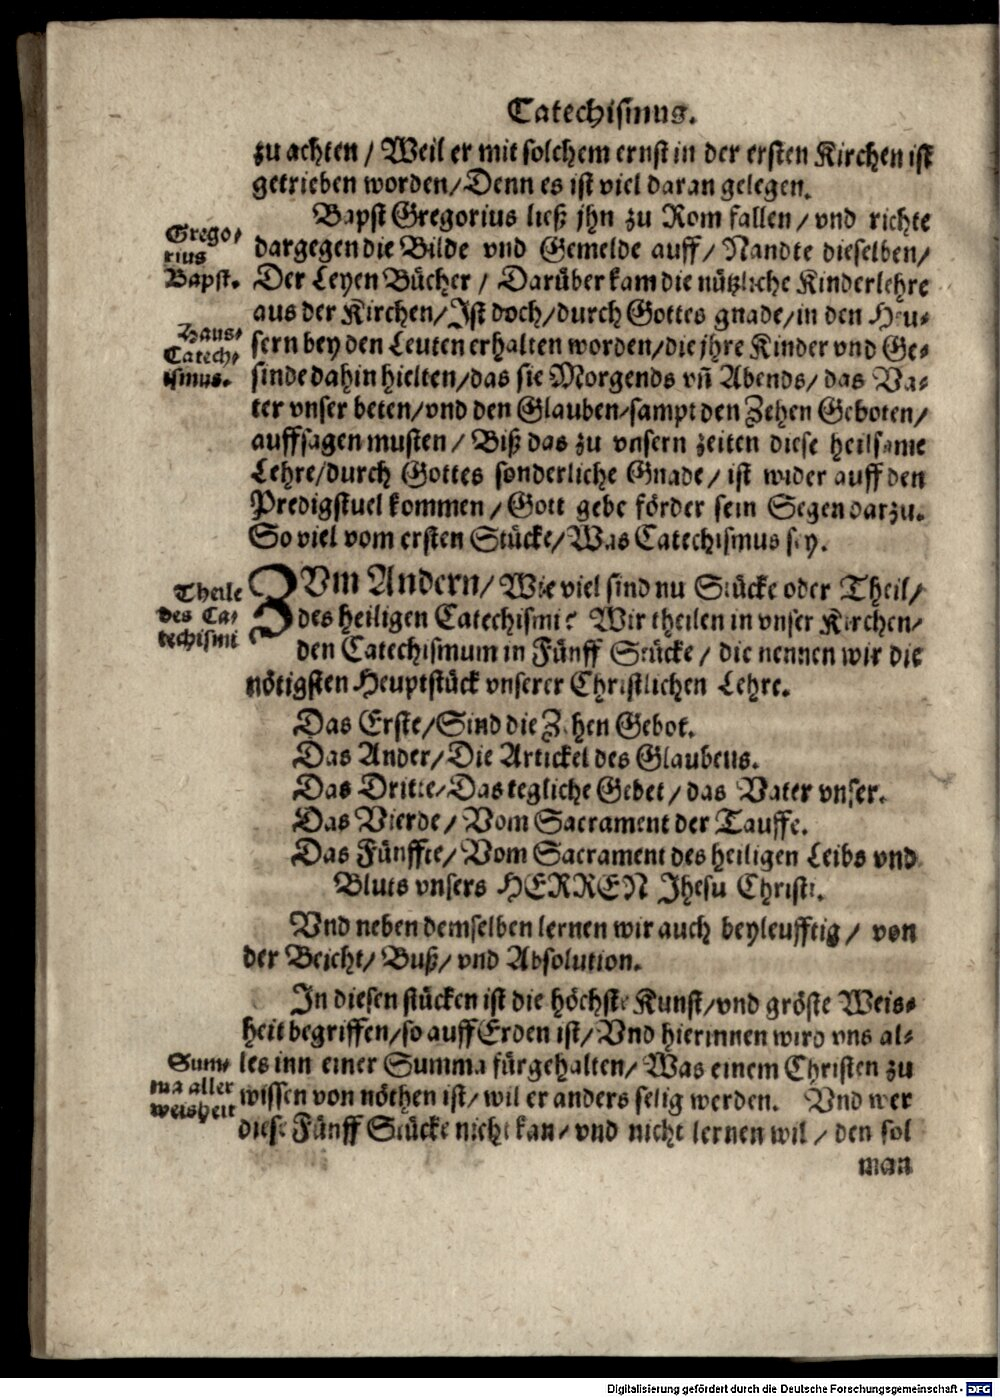 Catechismus.
zu achten / Weil er mit solchem ernst in der ersten Kirchen ist
getrieben worden/ Denn es ist viel daran gelegen.
Bapst Gregorius ließ jhn zu Rom fallen / vnd richte
dargegen die Bilde vnd Gemelde auff / Nandte dieselben/
Der Leyen Bücher / Darüber kam die nützliche Kinderlehre
aus der Kirchen/ Ist doch/ durch Gottes gnade/ in den Heu-
sern bey den Leuten erhalten worden/ die jhre Kinder vnd Ge-
sinde dahin hielten/ das sie Morgends vñ Abends/ das Va-
ter vnser beten/ vnd den Glauben/ sampt den Zehen Geboten/
auffsagen musten / Biß das zu vnsern zeiten diese heilsame
Lehre/ durch Gottes sonderliche Gnade / ist wider auff den
Predigstuel kommen / Gott gebe förder sein Segen darzu.
So viel vom ersten Stücke/ Was Catechismus sey.
Grego-
rius
Bapst.
Haus-
Catech-
ismus.
ZVm Andern/ Wie viel sind nu Stücke oder Theil/
des heiligen Catechismi? Wir theilen in vnser Kirchen/
den Catechismum in Fünff Stücke / die nennen wir die
nötigsten Heuptstück vnserer Christlichen Lehre.
Theile
des Ca-
techismi
Das Erste/ Sind die Zehen Gebot.
Das Ander/ Die Artickel des Glaubens.
Das Dritte/ Das tegliche Gebet / das Vater vnser.
Das Vierde / Vom Sacrament der Tauffe.
Das Fünffte/ Vom Sacrament des heiligen Leibs vnd
Bluts vnsers HERREN Jhesu Christi.
Vnd neben demselben lernen wir auch beyleufftig / von
der Beicht/ Buß/ vnd Absolution.
In diesen stücken ist die höchste Kunst/ vnd gröste Weis-
heit begriffen/ so auff Erden ist/ Vnd hierinnen wird vns al-
les inn einer Summa fürgehalten/ Was einem Christen zu
wissen von nöthen ist/ wil er anders selig werden. Vnd wer
diese Fünff Stücke nicht kan/ vnd nicht lernen wil / den sol
Sum-
ma aller
weisheit
man
Digitalisierung gefördert durch die Deutsche Forschungsgemeinschaft - DFG